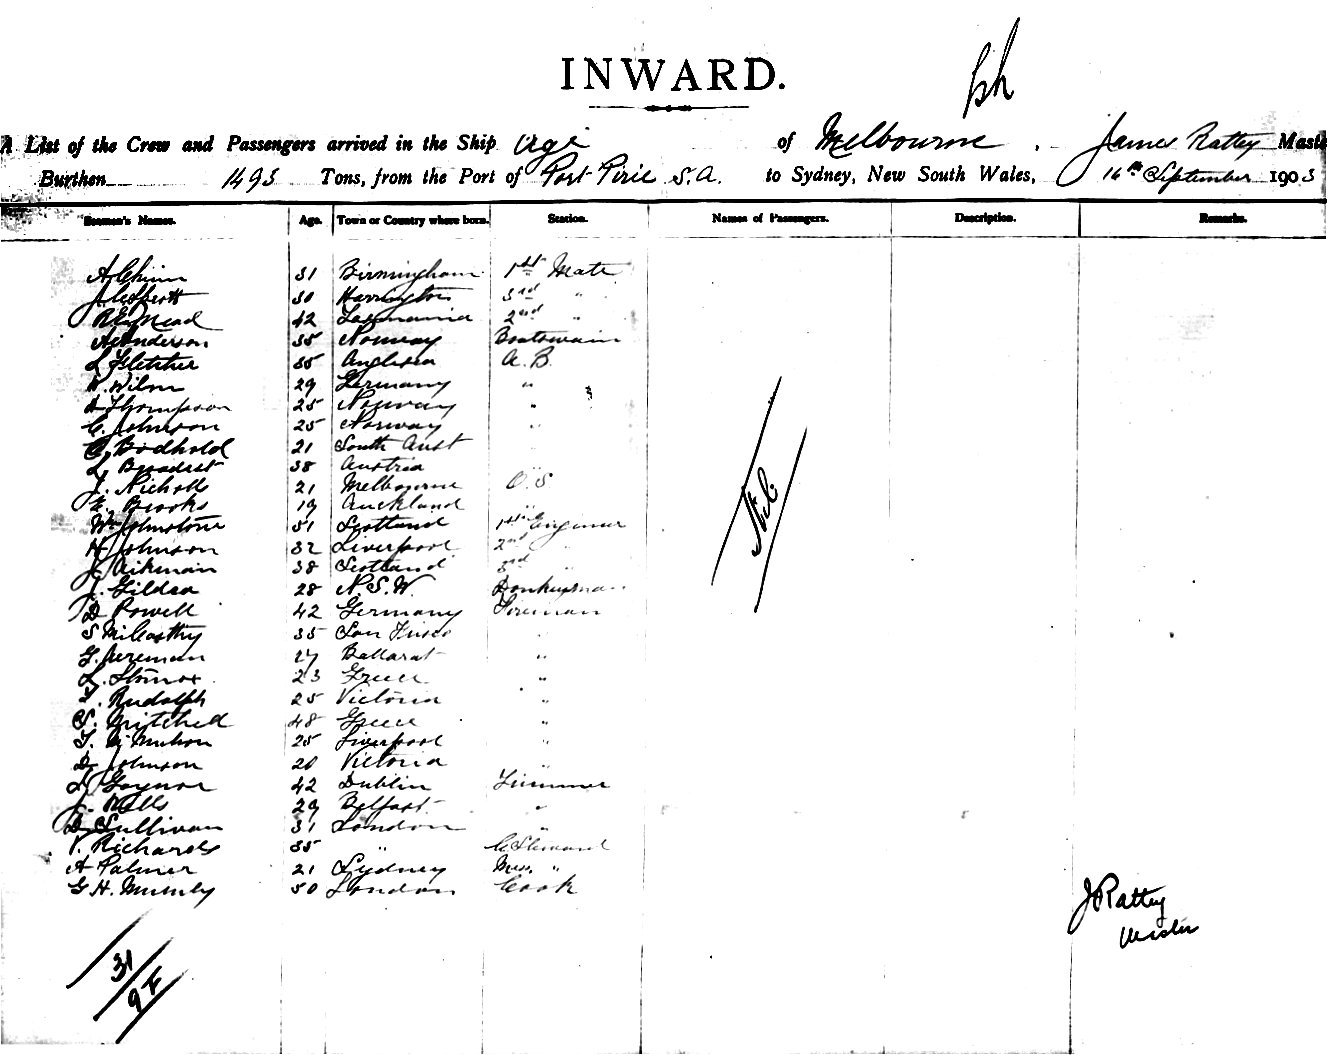 INWARD.
A List of the Crew and Passengers arrived in the Ship of Melbourne. James Rattey Maste
Burthen 1493 Tons, from the Port of Port Pirie S.A. to Sydney, New South Wales, 16th September 1903
Seamen's Names. Age. Town or Country where born. Station. Names of Passengers. Description. Remarks.
A Chinn 31 Birmingham 1st Mate
J 30 Harrington 3rd "
Mead 42 Tasmania 2nd "
A Anderson 35 Norway Boatswain
L Fletcher 35 Anglesea A.B.
W. Wilm 29 Germany "
A Thompson 25 Norway "
C. Johnson 25 Norway "
C. Bodhold 21 South Aust
L. 38 Austria "
J. Nicholls 21 Melbourne O.S
E. Brooks 19 Auckland "
Wm Johnstone 51 Scotland 1st Engineer
H Johnson 32 Liverpool 2nd "
J Aikman 38 Scotland 3rd "
J. Gildea 28 N.S.W. Donkeyman
D Powell 42 Germany Fireman
S McCarthy 35 San Frisco "
G. 27 Ballarat "
L. 23 Greece "
T. Rudolph 25 Victoria "
S. Mitchell 48 Greece "
T. 25 Liverpool "
D. Johnson 20 Victoria "
D Gaynor 42 Dublin Trimmer
J. Walls 29 Belfast "
D Sullivan 31 London "
V. Richards 35 " C Steward
A Palmer 21 Sydney Mess. "
G H. Mumby 50 London Cook
Nil
J Rattey
Master
31